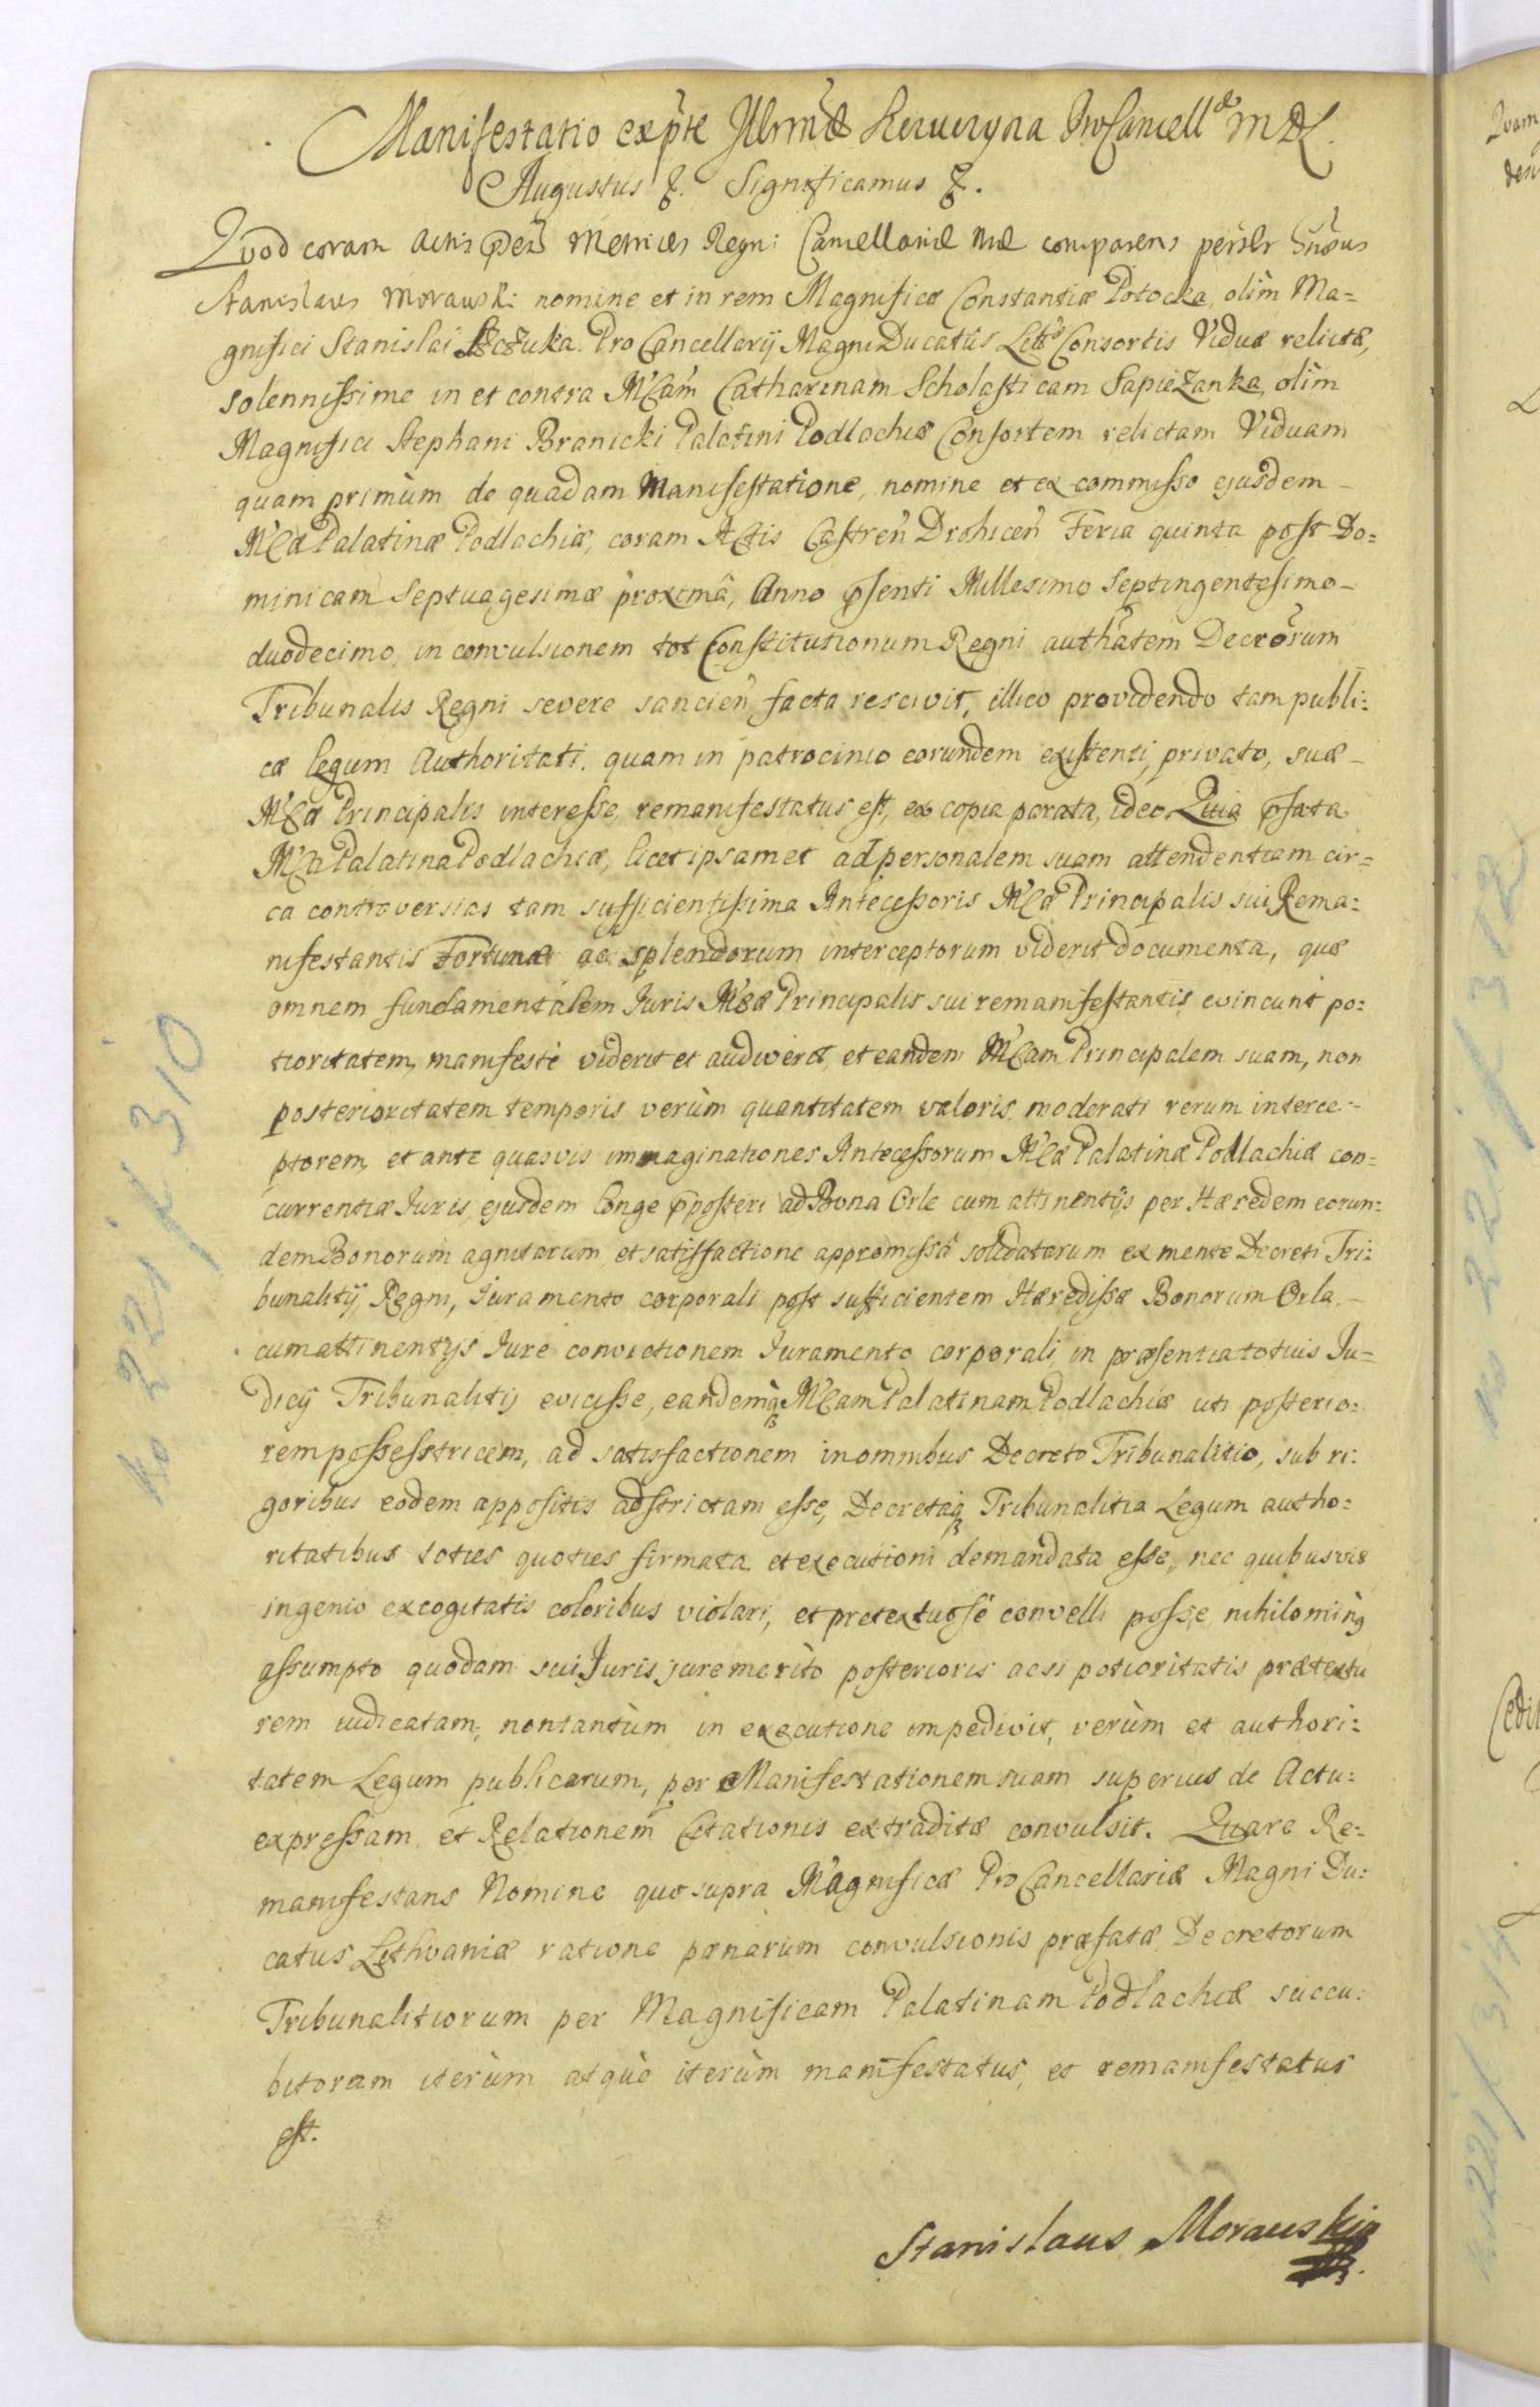 Manifestatio exp̃te Illrmæ Szczuczyna ProCancell. M D L.
Augustus &. Significamus &.
Quod coram Actis p̃ntibus Metrices Regni Cancellariæ Mæ comparens persr Gn̄osus
Stanislaus Morawski nomine et in rem Magnificæ Constantiæ Potocka, olim Ma=
gnifici Stanislai Szczuka Pro Cancellarij Magni Ducatûs Litt Consortis Viduæ relictæ,
solennissime in et contra M'Cam Catharinam Scholasticam Sapiezanka, olim
Magnifici Stephani Branicki Palatini Podlachiæ Consortem relictam Viduam
quam primùm de quadam Manifestatione, nomine et ex commisso ejusdem
M'Cæ Palatinæ Podlachiæ, coram Actis Castreñ Drohiceñ Feria quinta post Do=
minicam Septuagesimæ proximâ, Anno p̃senti Millesimo Septingentesimo
duodecimo, in convulsionem tot Constitutionum Regni auth̃atem Decr̃orum
Tribunalis Regni severe sancieñ facta rescivit, illico providendo tam publi:
cæ legum Authoritati, quam in patrocinio eorundem existenti, privato, suæ
M'Cæ Principalis interesse, remanifestatus est, ex copia parata, ideo Quia p̃fata
M'Ca Palatina Podlachiæ, licet ipsamet ad personalem suam attendentiam cir=
ca controversias tam sufficientissima Antecessoris M'Cæ Principalis sui Rema=
nifestantis Fortunæ ac splendorum interceptorum viderit documenta, quæ
omnem fundamentalem Juris M'Cæ Principalis sui remanifestantis evincunt po:
tioritatem, manifestè viderit et audiverit, et eandem M'Cam Principalem suam, non
posterioritatem temporis verùm quantitatem valoris moderati rerum interce=
ptorem, et ante quasvis immaginationes Antecessorum M'Cæ Palatinæ Podlachiæ con=
currentiæ Juris, ejusdem longe p̃posteri ad Bona Orle cum attinentijs per Hæredem eorun:
dem Bonorum agnitarum et satisfactione appromissâ solidatarum ex mente Decreti Tri:
bunalitij Regni, Juramento corporali post sufficientem Hæredissæ Bonorum Orla
cum attinentijs Jure convictionem Juramento corporali in præsentia totius Ju=
dicij Tribunalitij evicisse, eandemq M'Cam Palatinam Podlachiæ uti posterio=
rem possestricem, ad satisfactionem in omnibus Decreto Tribunalitio, sub ri:
goribus eodem appositis adstrictam esse, Decretaq Tribunalitia Legum autho=
ritatibus toties quoties firmata et executioni demandata esse, nec quibusvis
ingenio excogitatis coloribus violari, et pretextuosè convelli posse, nihilominq
assumpto quodam sui Juris, jure merito posterioris ac si potioritatis prætextu
rem iudicatam, nontantùm in executione impedivit, verùm et authori:
tatem Legum publicarum, per Manifestationem suam superius de Actu=
expressam, et Relationem Citationis extraditæ convulsit. Quare Re:
manifestans Nomine quo supra Magnificæ Pro Cancellariæ Magni Du:
catus Lithvaniæ ratione pœnarum convulsionis præfatæ Decretorum
Tribunalitiorum per Magnificam Palatinam Podlachiæ succu:
bitoram iterùm atquè iterùm manifestatus, et remanifestatus
est.
Stanislaus Morauski